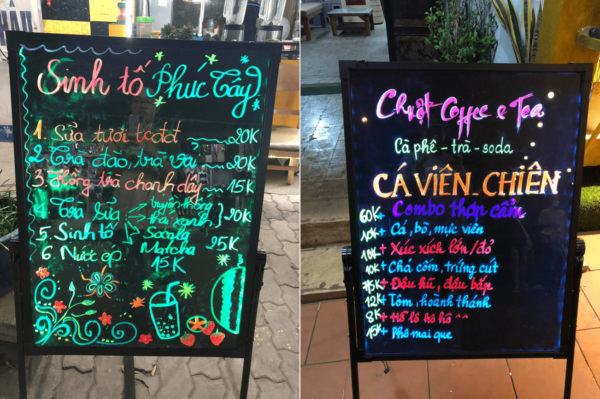 Sinh tố Phúc Tây
1. Sữa tươi tcđđ 20K
2. Trà đào, trà vải 20K
3. Hồng trà chanh dây 15K
4. Trà sữa truyền thống
thái xanh 20K
5. Sinh tố Socola
Matcha 25K
6. Nước ép. 15K
Chợt Coffee & Tea
Cà phê - trà - soda
CÁ VIÊN - CHIÊN
60K+ Combo thập cẩm
10k+ Cá, bò, mực viên
10k+ Xúc xích lớn/đỏ
10K+ Chả cốm, trứng cút
15K+ Đậu hũ, đậu bắp
12k+ Tôm, hoành thánh
8k+ Hồ lô hô hố ^^
15k+ Phô mai que